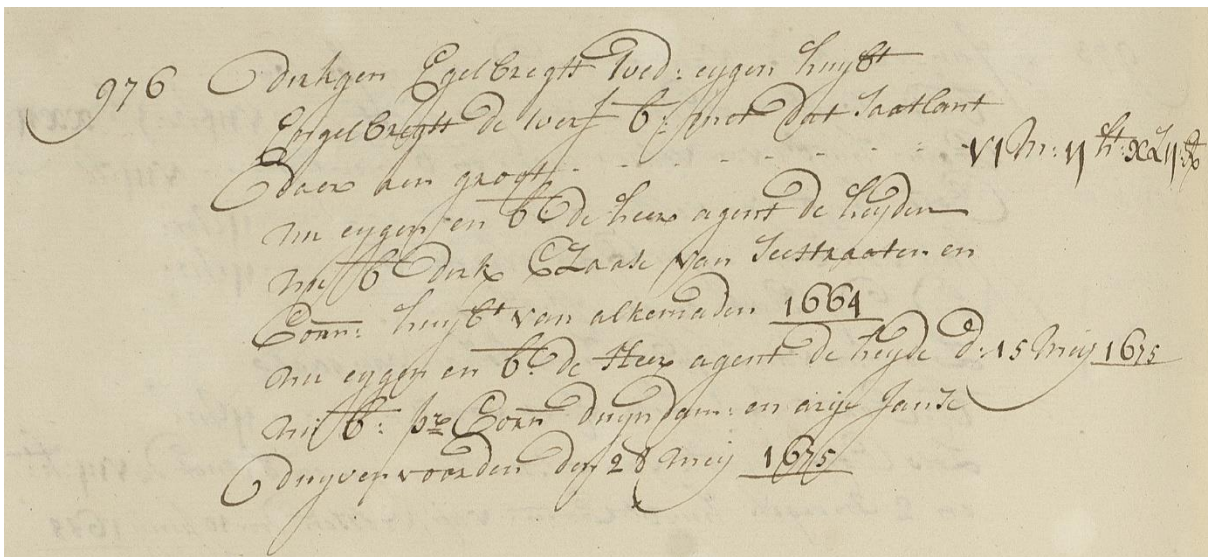 976 Dirkgen Egelbregtt Wed: eygen huybt
Engelbregtt de werf b: met dat Saatlant
Daer aen groot - - - - - - - VI M: II ht: XLII:
nu eygen en b de heer agent de heyden
nu b Dirk Claase van Seestraaten en
Corn: huybt van alkemaden 1664
nu eygen en b. de Heer agent de heyde d: 15 Meij 1675
nu b: pr Corn duyndam: en arije Janse
Duyvenvoorden den 28 Meij 1675